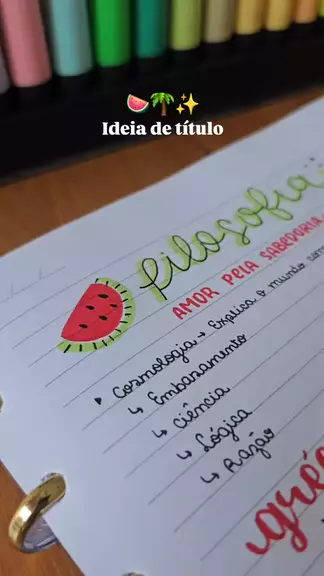 Ideia de título
filosofia
AMOR PELA SABEDORIA
• Cosmologia → Explica o mundo com
↳ Embasamento
↳ Ciência
↳ Lógica
↳ Razão
gré